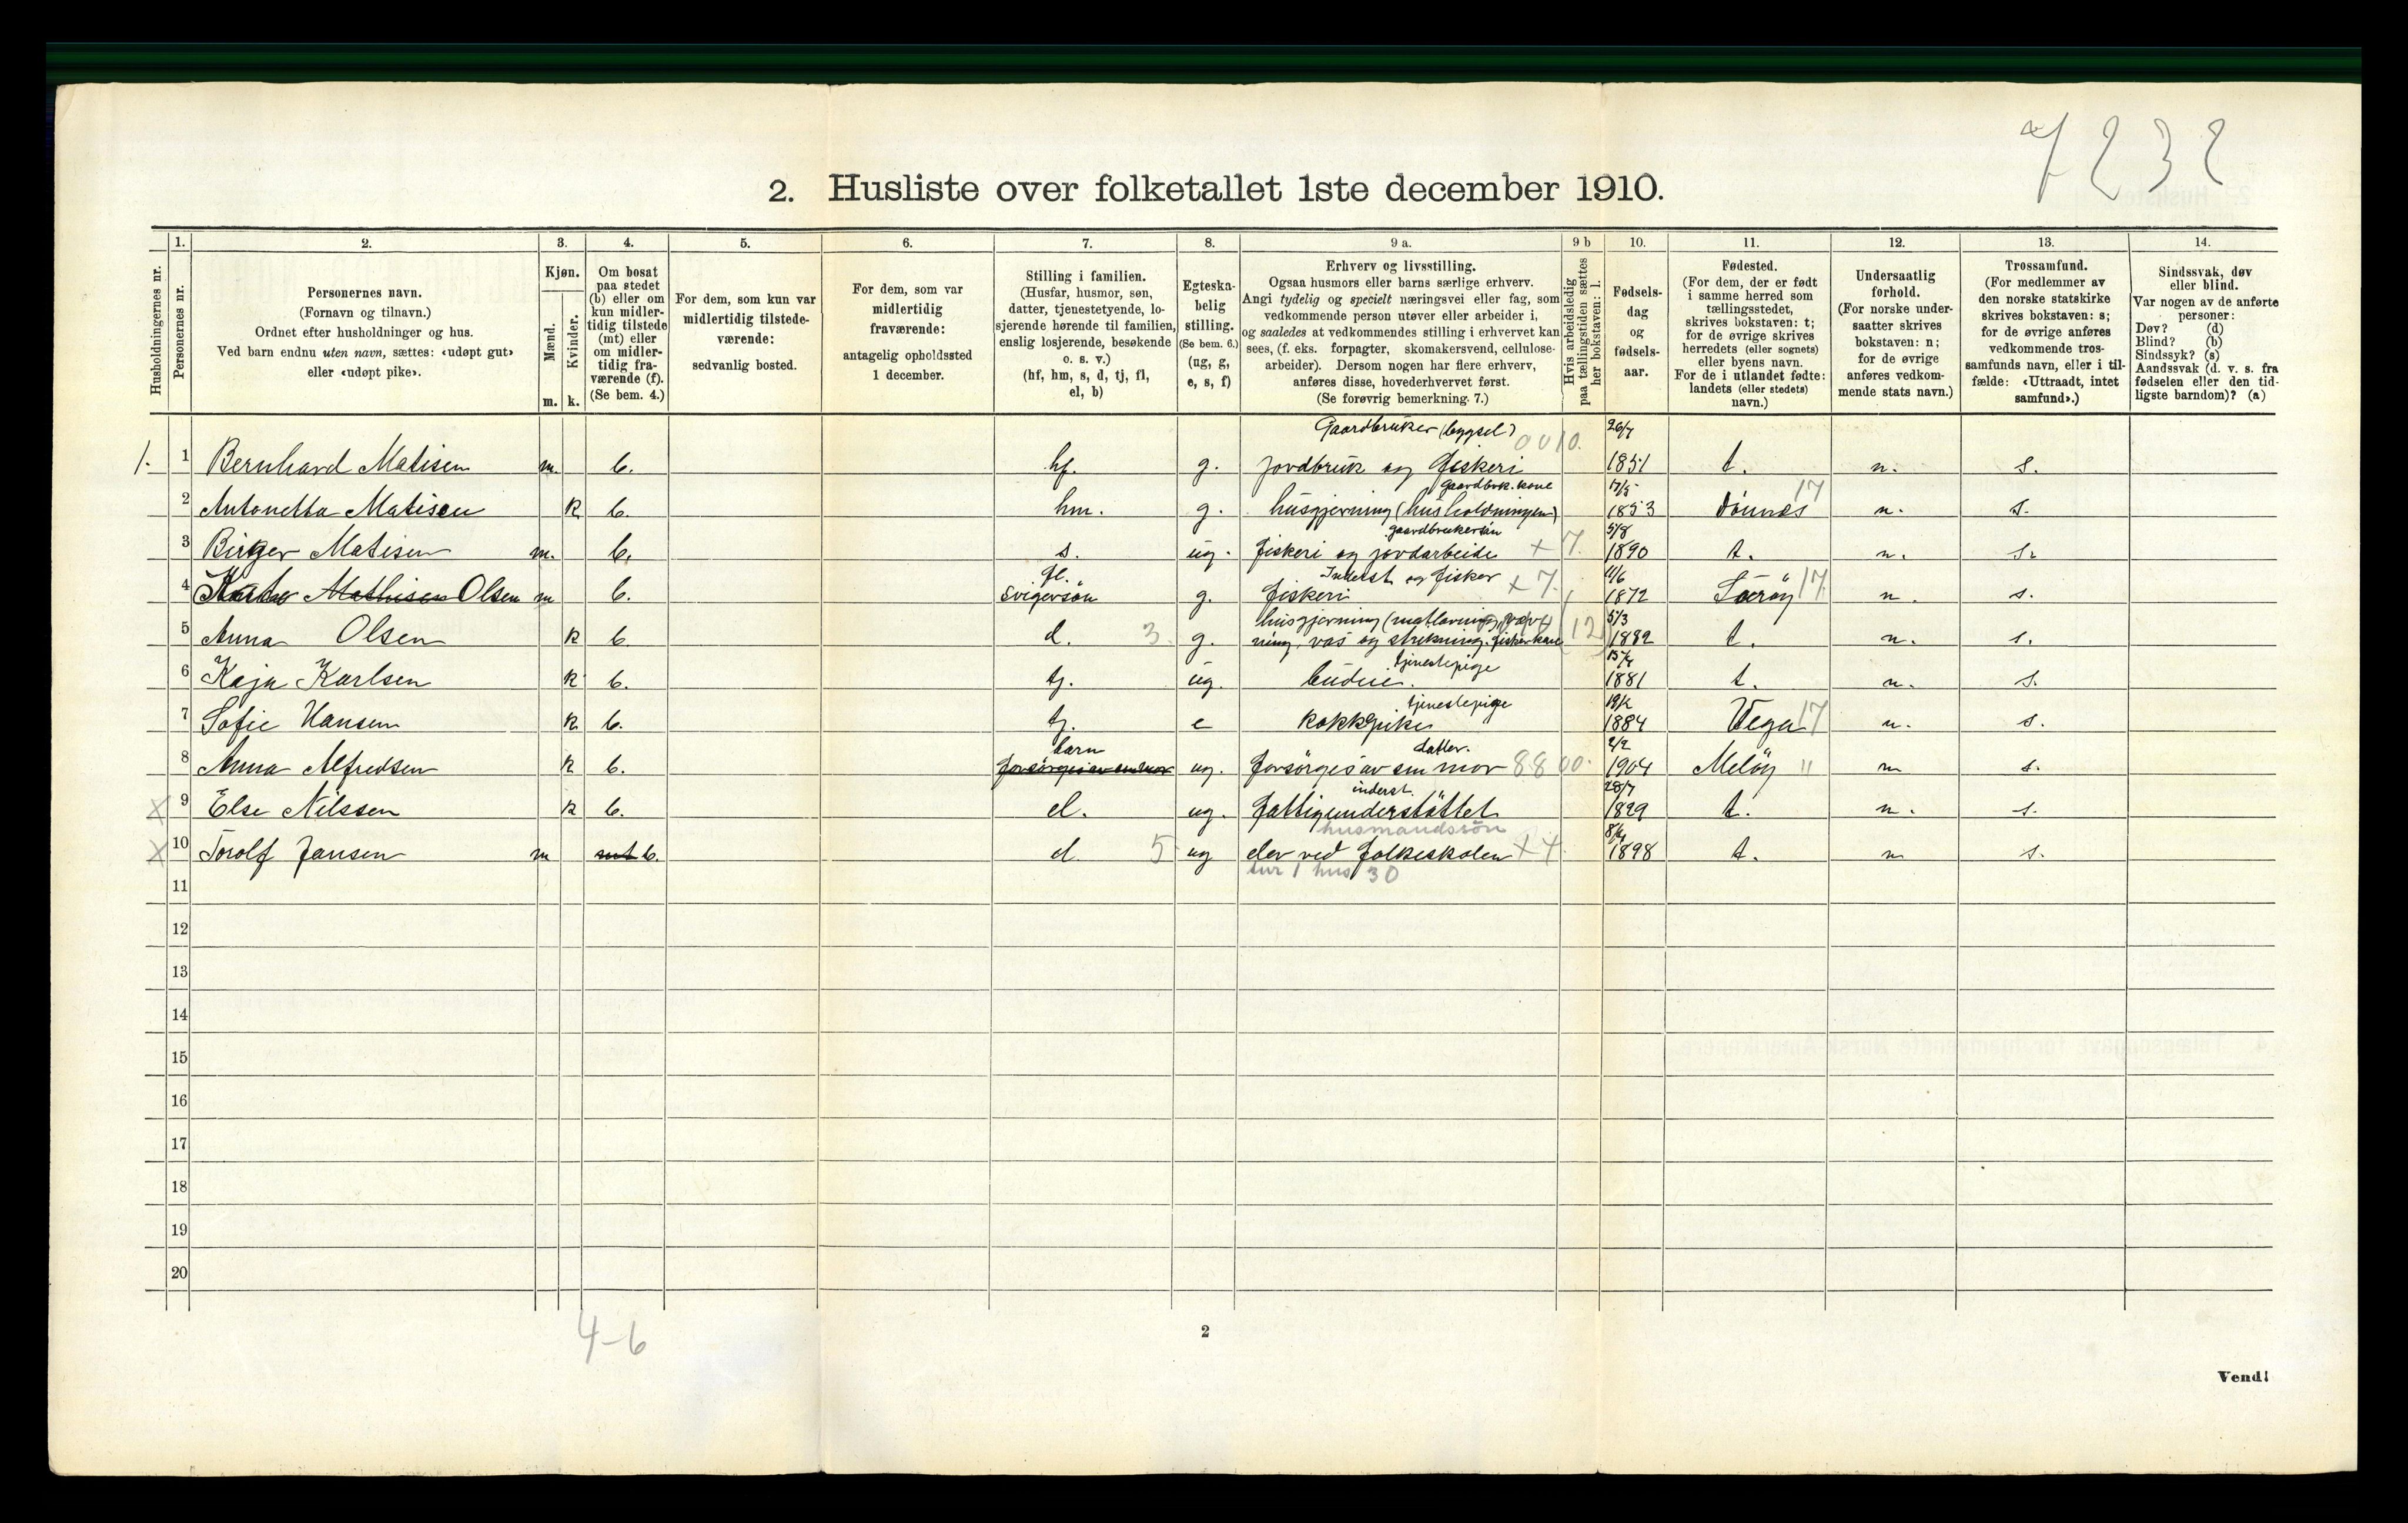 7232
2. Husliste over folketallet 1ste december 1910.
Husholdningernes nr.
1. Personernes nr.
2. Personernes navn.
(Fornavn og tilnavn.)
Ordnet efter husholdninger og hus.
Ved barn endnu uten navn, sættes: «udøpt gut»
eller «udøpt pike».
3. Kjøn.
Mænd. Kvinder.
m. k.
4. Om bosat
paa stedet
(b) eller om
kun midler-
tidig tilstede
(mt) eller
om midler-
tidig fra-
værende (f).
(Se bem. 4.)
5. For dem, som kun var
midlertidig tilstede-
værende:
sedvanlig bosted.
6. For dem, som var
midlertidig
fraværende:
antagelig opholdssted
1 december.
7. Stilling i familien.
(Husfar, husmor, søn,
datter, tjenestetyende, lo-
sjerende hørende til familien,
enslig losjerende, besøkende
o. s. v.)
(hf, hm, s, d, tj, fl,
el, b)
8. Egteska-
belig
stilling.
(Se bem. 6.)
(ug, g,
e, s, f)
9 a. Erhverv og livsstilling.
Ogsaa husmors eller barns særlige erhverv.
Angi tydelig og specielt næringsvei eller fag, som
vedkommende person utøver eller arbeider i,
og saaledes at vedkommendes stilling i erhvervet kan
sees, (f. eks. forpagter, skomakersvend, cellulose-
arbeider). Dersom nogen har flere erhverv,
anføres disse, hovederhvervet først.
(Se forøvrig bemerkning 7.)
9 b Hvis arbeidsledig
paa tællingstiden sættes
her bokstaven: l.
10. Fødsels-
dag
og
fødsels-
aar.
11. Fødested.
(For dem, der er født
i samme herred som
tællingsstedet,
skrives bokstaven: t;
for de øvrige skrives
herredets (eller sognets)
eller byens navn.
For de i utlandet fødte:
landets (eller stedets)
navn.)
12. Undersaatlig
forhold.
(For norske under-
saatter skrives
bokstaven: n;
for de øvrige
anføres vedkom-
mende stats navn.)
13. Trossamfund.
(For medlemmer av
den norske statskirke
skrives bokstaven: s;
for de øvrige anføres
vedkommende tros-
samfunds navn, eller i til-
fælde: «Uttraadt, intet
samfund».)
14. Sindssvak, døv
eller blind.
Var nogen av de anførte
personer:
Døv? (d)
Blind? (b)
Sindssyk? (s)
Aandssvak (d. v. s. fra
fødselen eller den tid-
ligste barndom)? (a)
Gaardbruker (bygsel) 26/7
1. 1 Bernhard Matisen m. b. hf. g. jordbruk og fiskeri 1851 t. n. s.
Gaardbrk. kone 17/5 17
2 Antonetta Matisen k b. hm. g. husgjerning (husholdningen) 1853 Dønnes n. s.
gaardbrukersøn 5/8
3 Birger Matisen m. b. s. ug. fiskeri og jordarbeide + 7. 1890 t. n. s.
fl. Inderst og fisker 11/6
4 Mathisen Olsen m b. Svigersøn g. fiskeri + 7. 1872 17 n. s.
5/3
5 Anna Olsen k b. d. 3. g. husgjerning ning, vas og strykning. fiskerkone 12 1882 t. n. s.
tjenestepige
6 Kaja Karlsen k b. tj. ug. budeie. 1881 t. n. s.
tjenestepige 19/2
7 Sofie Hansen k b. tj. e kokkepike 1884 Vega 17 n. s.
barn datter. 2/2
8 Anna Alfredsen k b. forsørges av sin mor ug. forsørges av sin mor 8800. 1904 Meløy " n s.
inderst. 28/7
X 9 Else Nilssen k b. el. ug. fattigunderstøttet 1829 t. n. s.
husmandssøn
X 10 Torolf Jansen m mt b. el 5 ug elev ved folkeskolen + 4. 1898 t. n s.
tur 1 hus 30
11
12
13
14
15
16
17
18
19
20
4-6
2
Vend!